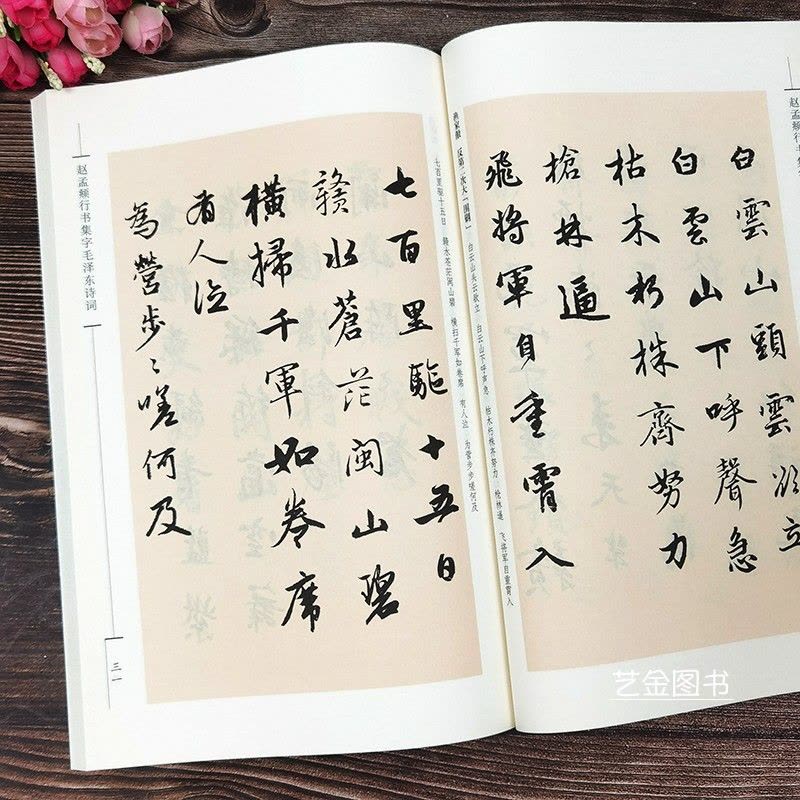 白雲山頭雲欲立
白雲山下呼聲急
枯木朽株齊努力
搶林逼
飛將軍自重霄入
七百里驅十五日
贛水蒼茫閩山碧
橫掃千軍如卷席
有人泣
為營步〻嗟何及
渔家傲 反第二次大「围剿」
白云山头云欲立 白云山下呼声急 枯木朽株齐努力 枪林逼 飞将军自重霄入
七百里驱十五日 赣水苍茫闽山碧 横扫千军如卷席 有人泣 为营步步嗟何及
赵孟頫行书集字毛泽东诗词
三一
赵孟頫行书集
艺金图书